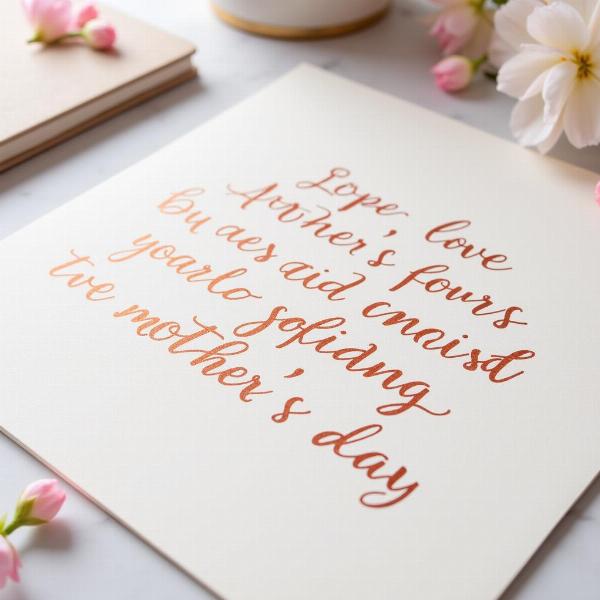 Lope, love
Arvher's fours
Bu aes aid cnrisd
yoarlo sofidng
tve mother's day